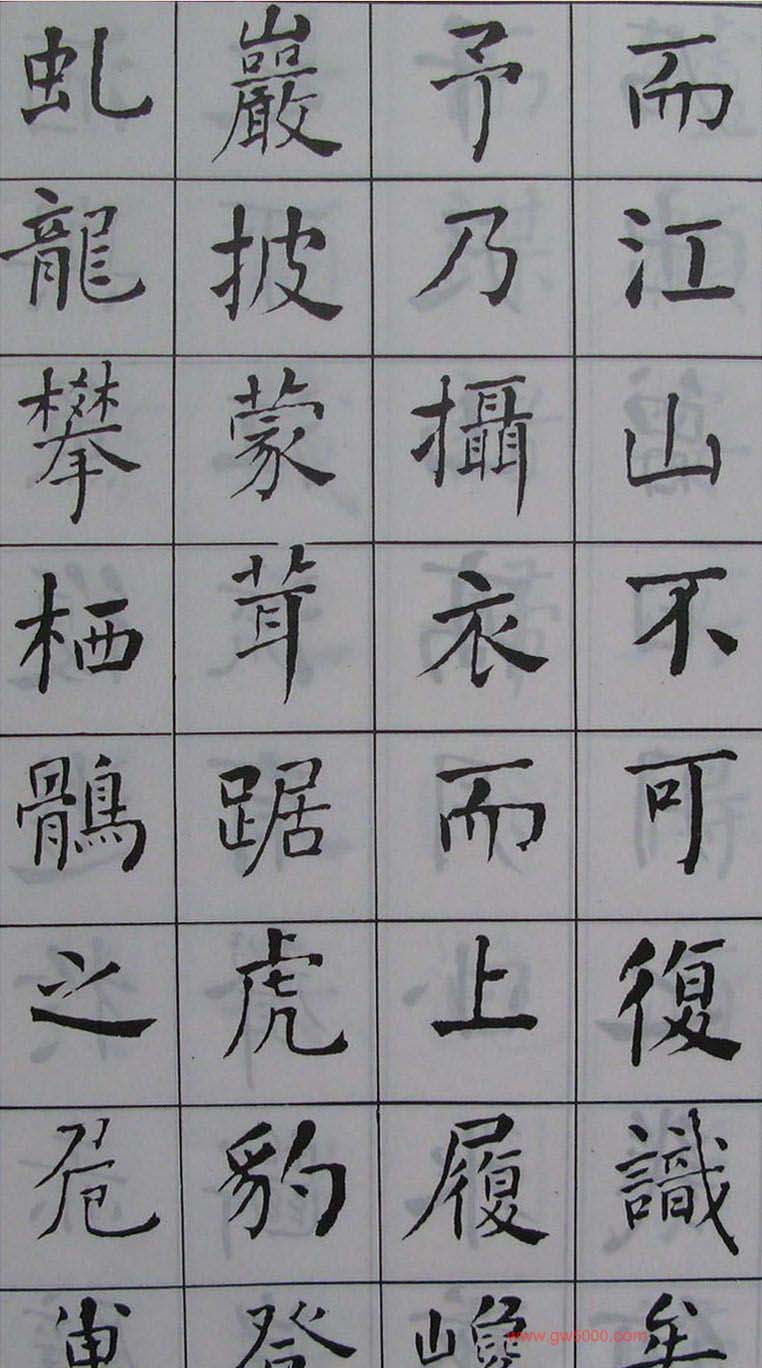 而江山不可復識矣
予乃攝衣而上履巉
巖披蒙茸踞虎豹登
虬龍攀栖鶻之危
www.gw5000.com